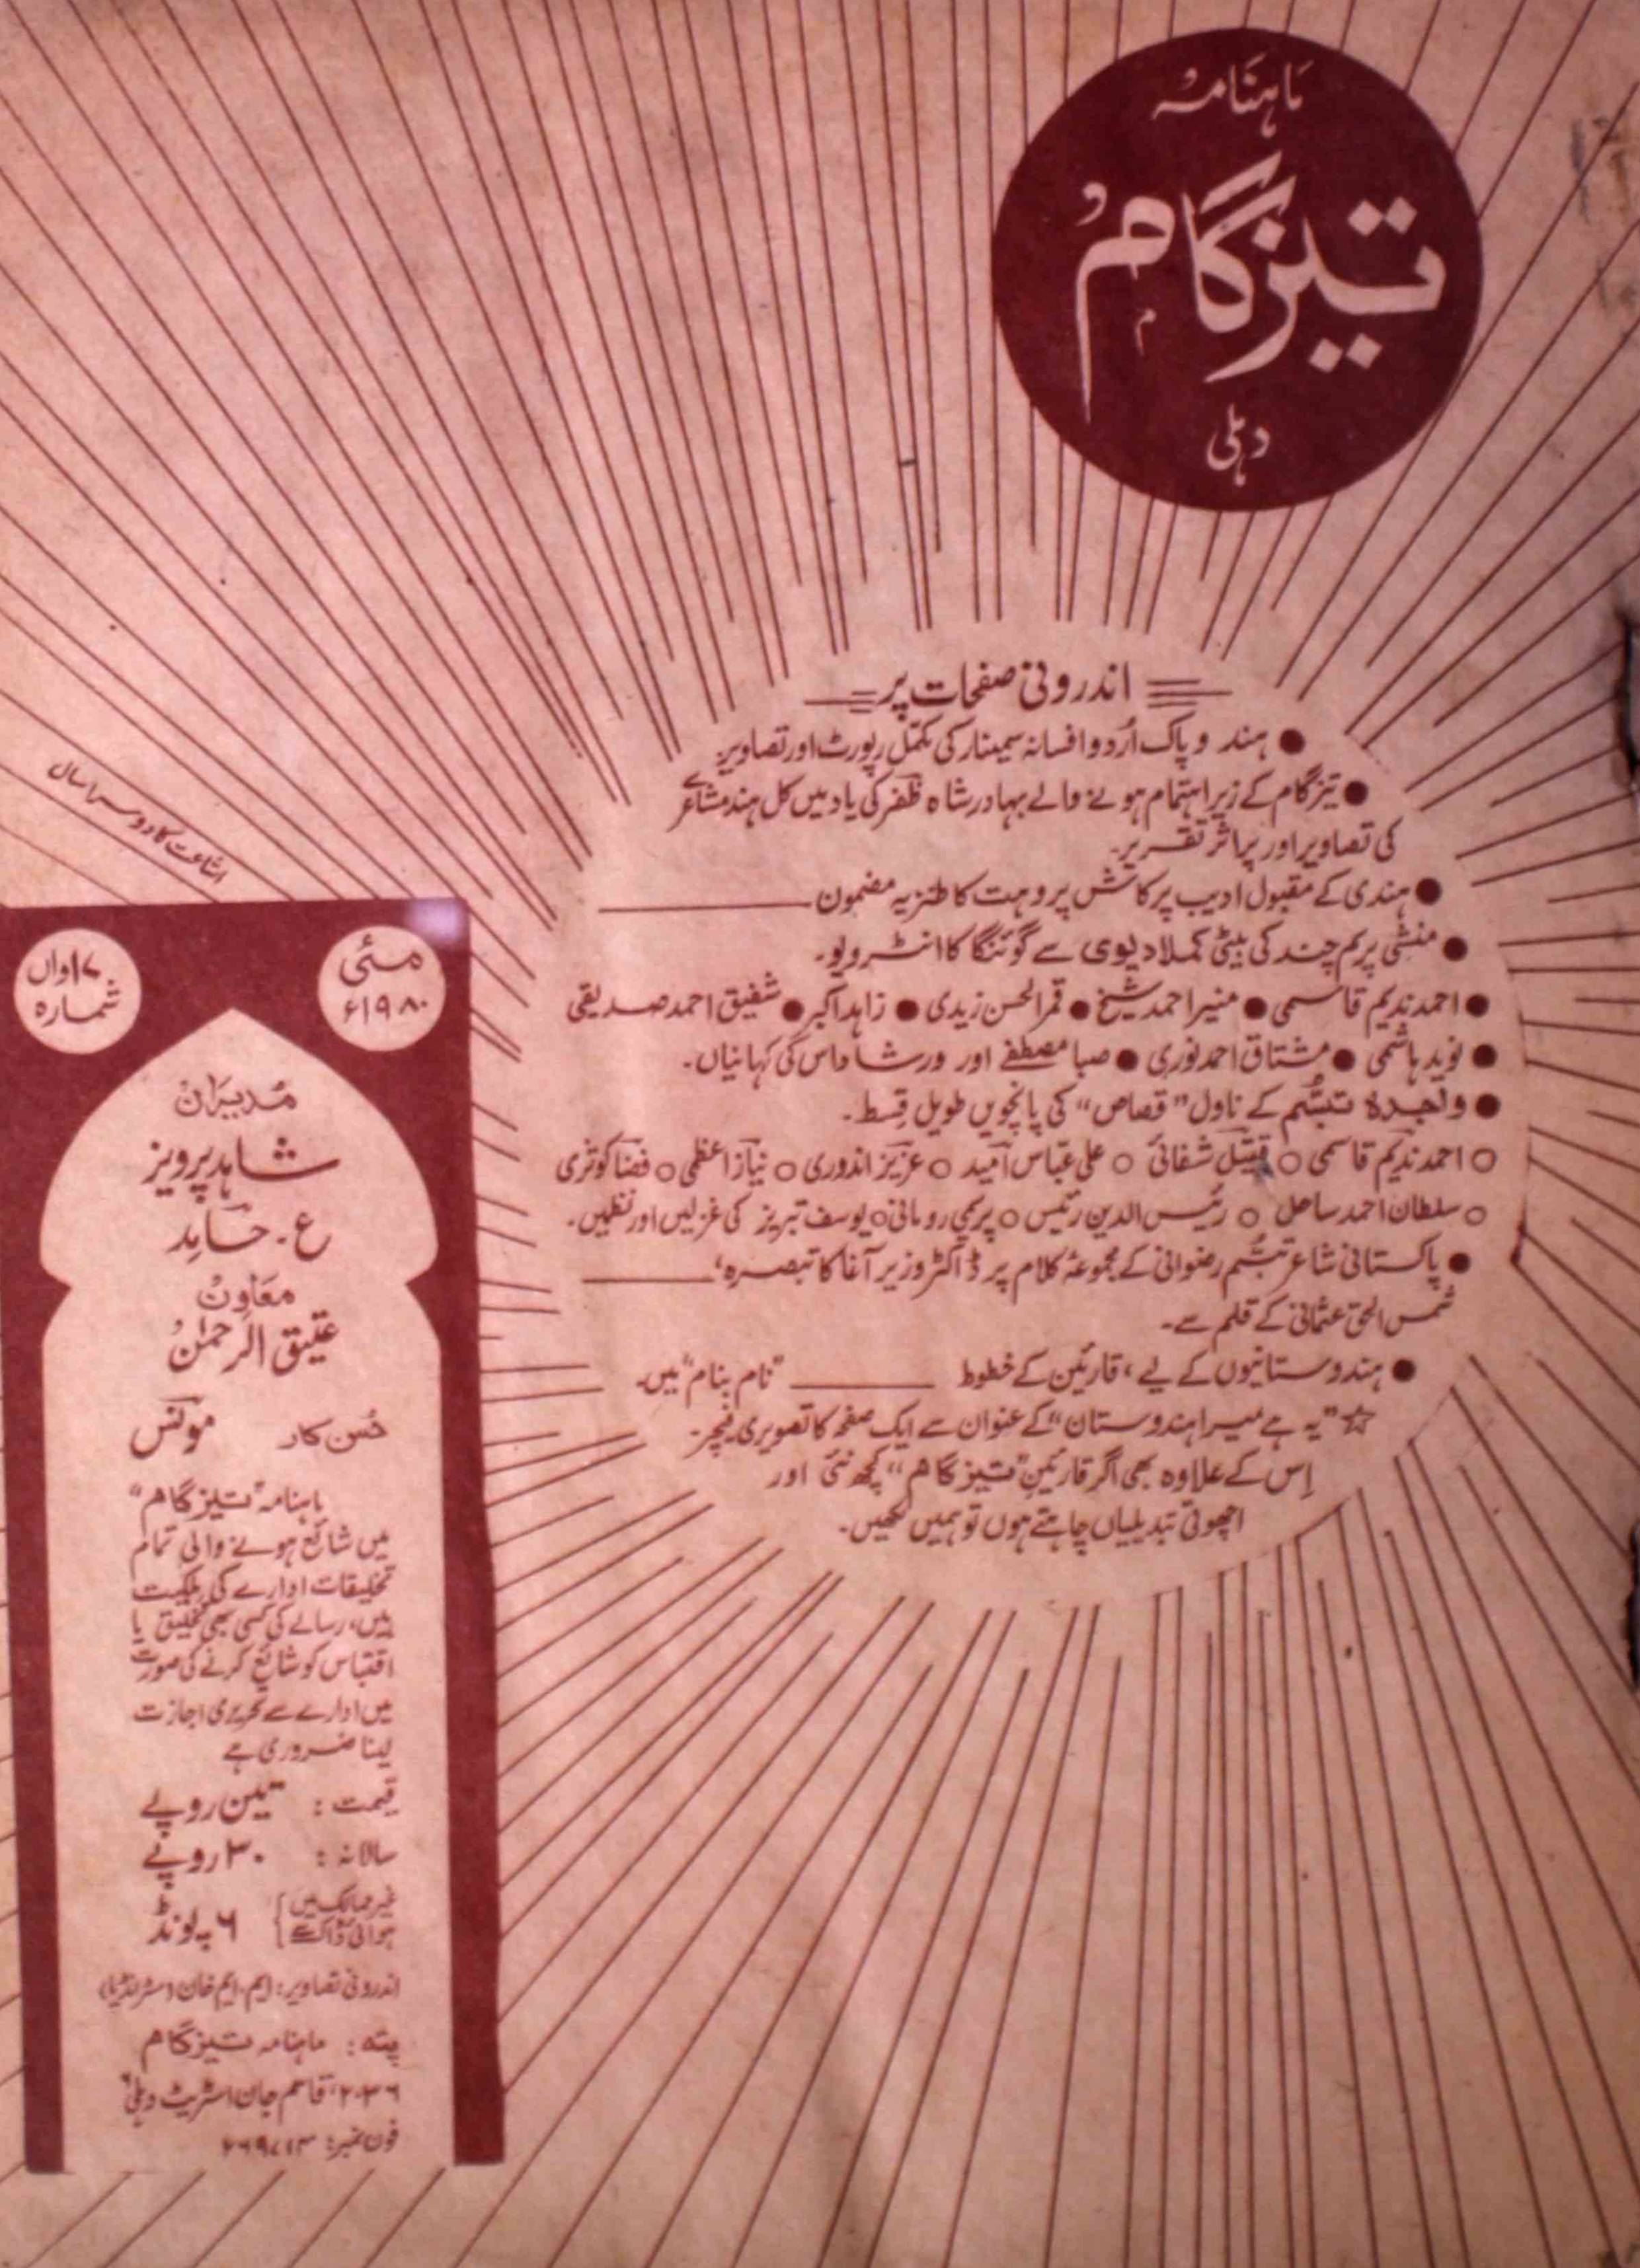 ماہنامہ
تیزگام
دہلی
اندرونی صفحات پر
● ہند و پاک اُردو افسانہ سمینار کی مکمل رپورٹ اور تصاویر۔
● تیزگام کے زیرِ اہتمام ہونے والے بہادر شاہ ظفر کی یاد میں کل ہند مشاعرے
کی تصاویر اور پر اثر تقریر۔
● ہندی کے مقبول ادیب پرکاش پروہت کا طنزیہ مضمون
● منشی پریم چند کی بیٹی کملا دیوی سے گوئنگا کا انٹرویو۔
● احمد ندیم قاسمی ● منیر احمد شیخ ● قمر الحسن زیدی ● زاہد اکبر ● شفیق احمد صدیقی
● نوید ہاشمی ● مشتاق احمد نوری ● صبا مصطفےٰ اور ورشا داس کی کہانیاں۔
● واجدہ تبسّم کے ناول "قصاص" کی پانچویں طویل قسط۔
○ احمد ندیم قاسمی ○ قتیل شفائی ○ علی عباس امید ○ عزیز اندوری ○ نیاز اعظمی ○ فضا کوثری
○ سلطان احمد ساحل ○ رئیس الدین رئیس ○ پریمی رومانی ○ یوسف تبریز کی غزلیں اور نظمیں۔
● پاکستانی شاعر تبسّم رضوانی کے مجموعۂ کلام پر ڈاکٹر وزیر آغا کا تبصرہ،
شمس الحق عثمانی کے قلم سے۔
● ہندوستانیوں کے لیے، قارئین کے خطوط "نام بنام" میں۔
☆ "یہ ہے میرا ہندوستان" کے عنوان سے ایک صفحہ کا تصویری فیچر۔
اِس کے علاوہ بھی اگر قارئینِ "تیزگام" کچھ نئی اور
اچھوتی تبدیلیاں چاہتے ہوں تو ہمیں لکھیں۔
اشاعت کا دوسرا سال
مئی
۱۹۸۰ء
۱۷واں
شمارہ
مُدیران
شاہد پرویز
ع۔ حامد
معاون
عتیق الرحمٰن
حُسن کار مونس
ماہنامہ "تیزگام"
میں شائع ہونے والی تمام
تخلیقات ادارے کی ملکیت
ہیں، رسالے کی کسی بھی تخلیق یا
اقتباس کو شائع کرنے کی صورت
میں ادارے سے تحریری اجازت
لینا ضروری ہے
قیمت : تین روپے
سالانہ : ۳۰ روپے
غیر ممالک میں
ہوائی ڈاک سے } ۶ پونڈ
اندرونی تصاویر: ایم۔ ایم خان
پتہ : ماہنامہ تیزگام
۲۰۳۶، قاسم جان اسٹریٹ دہلی ۶
فون نمبر: ۲۶۹۷۱۳